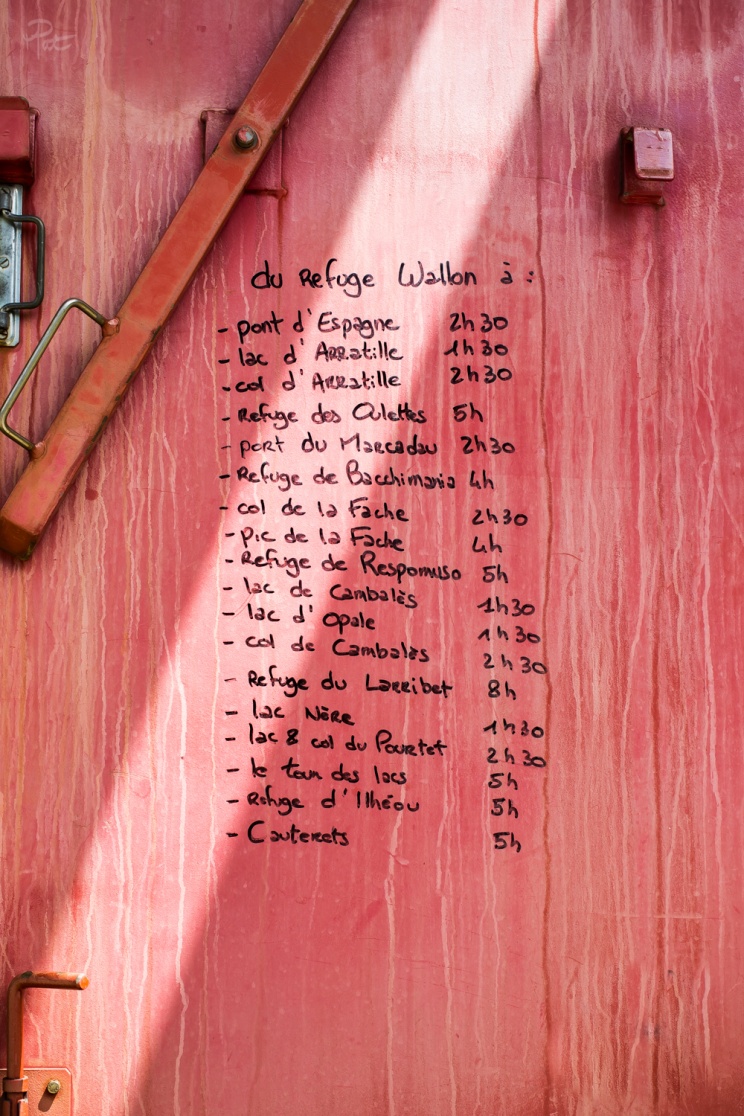 du Refuge Wallon à :
- pont d'Espagne 2h30
- lac d'Arratille 1h30
- col d'Arratille 2h30
- Refuge des Oulettes 5h
- port du Marcadau 2h30
- Refuge de Bacchimania 4h
- col de la Fache 2h30
- pic de la Fache 4h
- Refuge de Respomuso 5h
- lac de Cambalès 1h30
- lac d'Opale 1h30
- col de Cambalès 2h30
- Refuge du Larribet 8h
- lac Nère 1h30
- lac & col du Pourtet 2h30
- le tour des lacs 5h
- Refuge d'Ilhéou 5h
- Cauterets 5h